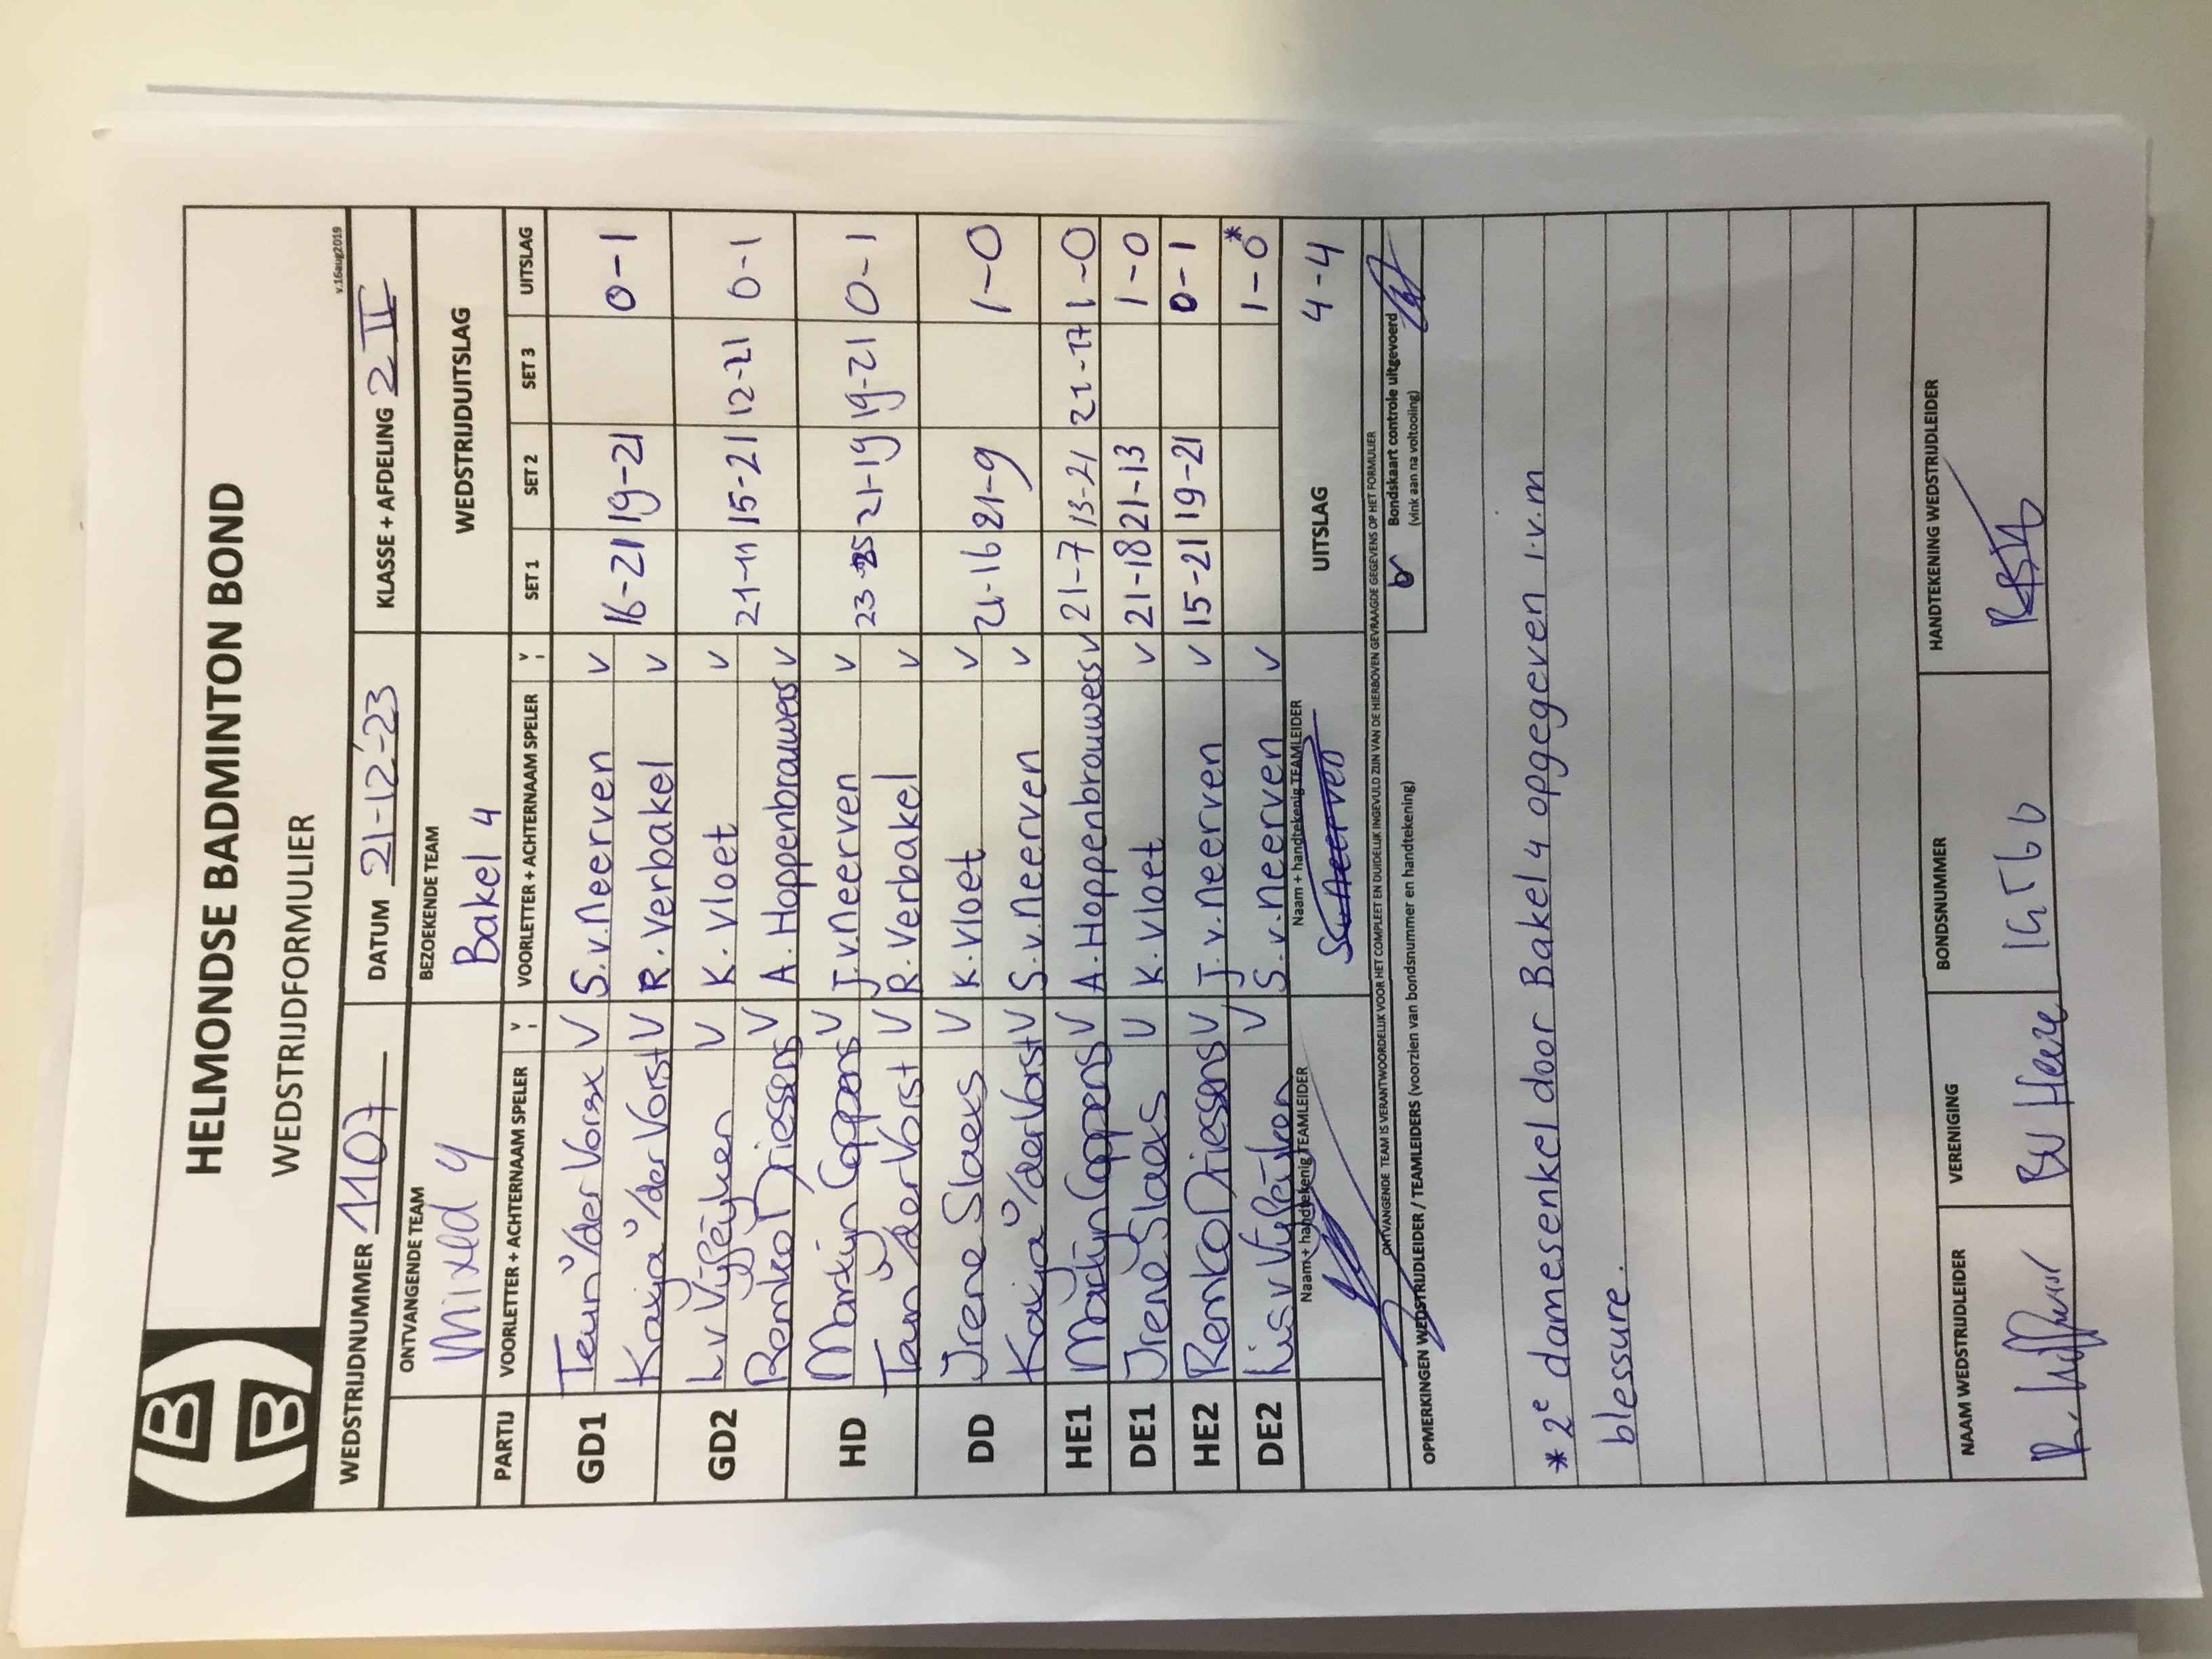 HELMONDSE BADMINTON BOND
WEDSTRIJDFORMULIER
v.16aug2019
WEDSTRIJDNUMMER 1107 DATUM 21-12-'23 KLASSE + AFDELING 2 II
ONTVANGENDE TEAM BEZOEKENDE TEAM WEDSTRIJDUITSLAG
Mixed 4 Bakel 4
PARTIJ VOORLETTER + ACHTERNAAM SPELER VOORLETTER + ACHTERNAAM SPELER SET 1 SET 2 SET 3 UITSLAG
GD1 Teun v/der Vorst V S.v.Neerven V
Kaija v/der Vorst V R. Verbakel V 16-21 19-21 0-1
GD2 V K. Vloet V
Remko Driessens V A. Hoppenbrouwers V 21-11 15-21 12-21 0-1
HD Martijn Coppens V J.v.Neerven V
v/der Vorst V R. Verbakel V 23-25 21-19 19-21 0-1
DD Irene Slaets V K. Vloet V
Kaija v/der Vorst V S.v.Neerven V 21-16 21-9 1-0
HE1 Martijn Coppens V A. Hoppenbrouwers V 21-7 13-21 21-17 1-0
DE1 Irene Slaets V K. Vloet V 21-18 21-13 1-0
HE2 Remko Driessens V J.v.Neerven V 15-21 19-21 0-1
DE2 V S.v.Neerven V 1-0*
Naam + handtekenig TEAMLEIDER Naam + handtekenig TEAMLEIDER UITSLAG 4-4
S.v.Neerven
ONTVANGENDE TEAM IS VERANTWOORDELIJK VOOR HET COMPLEET EN DUIDELIJK INGEVULD ZIJN VAN DE HIERBOVEN GEVRAAGDE GEGEVENS OP HET FORMULIER
Bondskaart controle uitgevoerd
(vink aan na voltooiing)
OPMERKINGEN WEDSTRIJDLEIDER / TEAMLEIDERS (voorzien van bondsnummer en handtekening)
* 2e damesenkel door Bakel 4 opgegeven i.v.m
blessure.
NAAM WEDSTRIJDLEIDER VERENIGING BONDSNUMMER HANDTEKENING WEDSTRIJDLEIDER